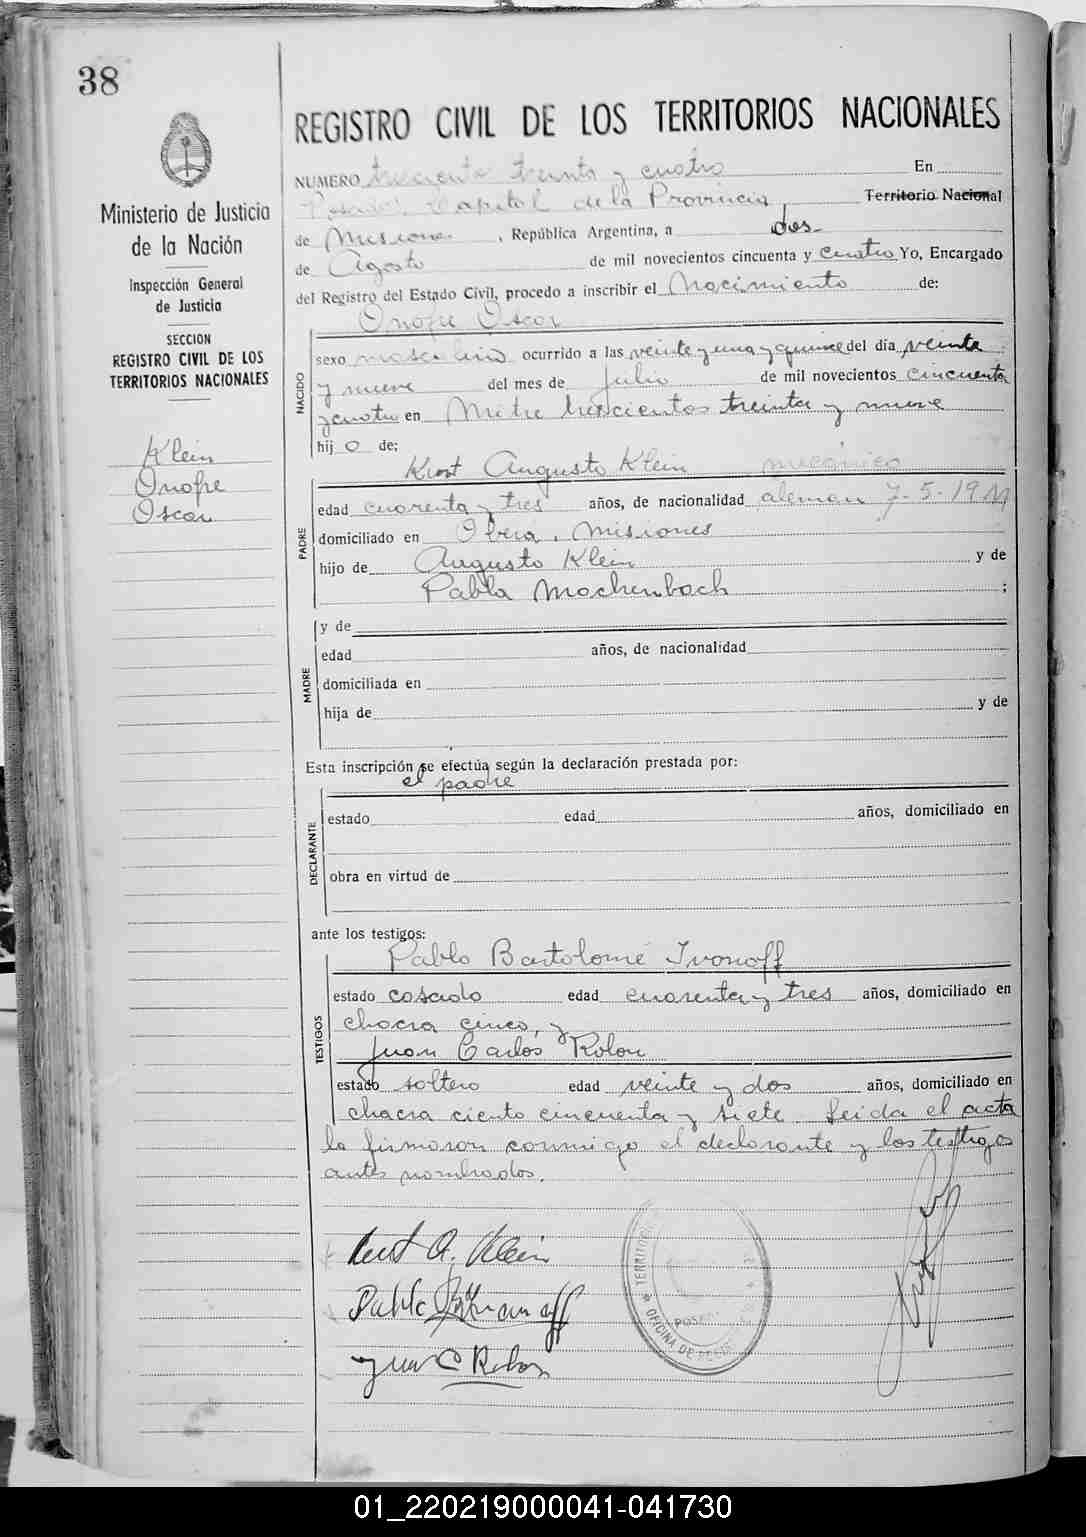 38
REGISTRO CIVIL DE LOS TERRITORIOS NACIONALES
Ministerio de Justicia
de la Nación
Inspección General
de Justicia
SECCION
REGISTRO CIVIL DE LOS
TERRITORIOS NACIONALES
Klein
Onofre
Oscar
NUMERO treciento treinta y cuatro En
Posadas, Capital de la Provincia Territorio Nacional
de Misiones, República Argentina, a dos
de Agosto de mil novecientos cincuenta y cuatro Yo, Encargado
del Registro del Estado Civil, procedo a inscribir el Nacimiento de:
Onofre Oscar
NACIDO
sexo masculino ocurrido a las veinte y una y quince del día veinte
y nueve del mes de Julio de mil novecientos cincuenta
y cuatro en Mitre trescientos treinta y nueve
hij o de:
Kurt Augusto Klein mecánico
PADRE
edad cuarenta y tres años, de nacionalidad aleman 7-5-1911
domiciliado en Oberá, Misiones
hijo de Augusto Klein y de
Pabla Mochenbach ;
MADRE
y de
edad años, de nacionalidad
domiciliada en
hija de y de
Esta inscripción se efectúa según la declaración prestada por:
el padre
DECLARANTE
estado edad años, domiciliado en
obra en virtud de
ante los testigos:
Pablo Bartolomé Ivonoff
TESTIGOS
estado casado edad cuarenta y tres años, domiciliado en
chacra cinco, y
Juan Carlos Rolon
estado soltero edad veinte y dos años, domiciliado en
chacra ciento cincuenta y siete. Leida el acta
la firmaron conmigo el declarante y los testigos
antes nombrados.
Kurt A. Klein
Pablo
Juan C Rolon
TERRITOR
OFICINA DE
POSA
01_220219000041-041730